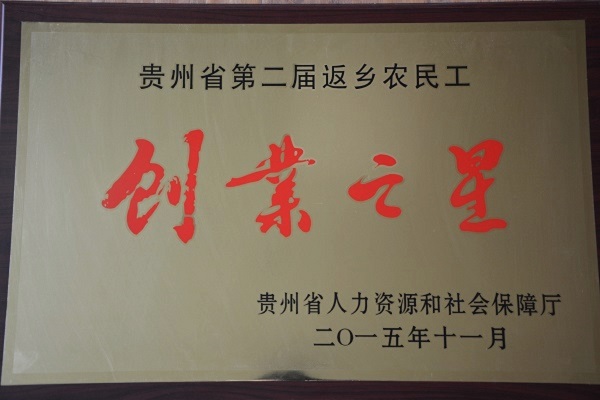 贵州省第二届返乡农民工
创業之星
贵州省人力资源和社会保障厅
二〇一五年十一月